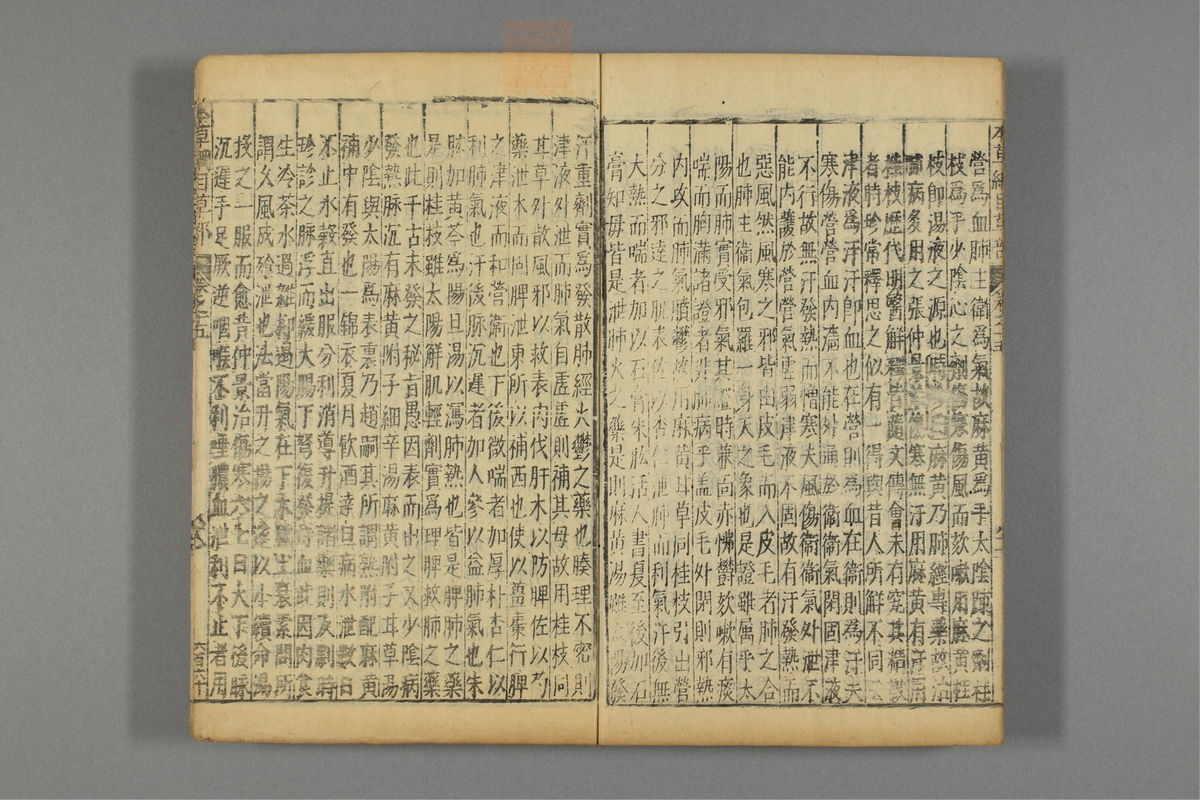 營爲血肺主衛爲氣故麻黃爲手太陰肺之劑桂
枝爲手少陰心之劑傷寒傷風而欬嗽用麻黃桂
枝卽湯液之源也時珍曰麻黃乃肺經專藥故治
肺病多用之張仲景治傷寒無汗用麻黃有汗用
桂枝歷代明醫解釋皆隨文傳會未有究其精微
者時珍常釋思之似有一得與昔人所解不同云
津液爲汗汗卽血也在營則爲血在衛則爲汗夫
寒傷營營血內濇不能外漏於衛衛氣閉固津液
不行故無汗發熱而憎寒夫風傷衛衛氣外泄不
能內護於營營氣虛弱津液不固故有汗發熱而
惡風然風寒之邪皆由皮毛而入皮毛者肺之合
也肺主衛氣包羅一身天之象也是證雖属乎太
陽而肺實受邪氣其證時兼面赤怫鬱欬嗽有痰
喘而胸滿諸證者非肺病乎盖皮毛外閉則邪熱
內攻而肺氣膹鬱故用麻黃甘草同桂枝引出營
分之邪達之肌表佐以杏仁泄肺而利氣汗後無
大熱而喘者加以石膏朱肱活人書夏至後加石
膏知母皆是泄肺火之藥是則麻黃湯雖太陽發
汗重劑實爲發散肺經火鬱之藥也腠理不宻則
津液外泄而肺氣自虛虛則補其母故用桂枝同
甘草外散風邪以救表內伐肝木以防脾佐以芍
藥泄木而固脾泄東所以補西也使以薑棗行脾
之津液而和營衛也下後微喘者加厚朴杏仁以
利肺氣也汗後脉沉遲者加人參以益肺氣也朱
肱加黃芩爲陽旦湯以瀉肺熱也皆是脾肺之藥
是則桂枝雖太陽解肌輕劑實爲理脾救肺之藥
也此千古未發之秘旨愚因表而出之又少陰病
發熱脉沉有麻黃附子細辛湯麻黃附子甘草湯
少陰與太陽爲表裏乃趙嗣真所謂熟附配麻黃
補中有發也一錦衣夏月飲酒達旦病水泄數日
不止水穀直出服分利消導升提諸藥則反劇時
珍診之脉浮而緩大腸下弩復發痔血此因肉食
生冷茶水過雜抑遏陽氣在下木盛土衰素問所
謂久風成飱泄也法當升之揚之遂以小續命湯
投之一服而愈昔仲景治傷寒六七日大下後脉
沉遲手足厥逆咽喉不利唾膿血泄利不止者用